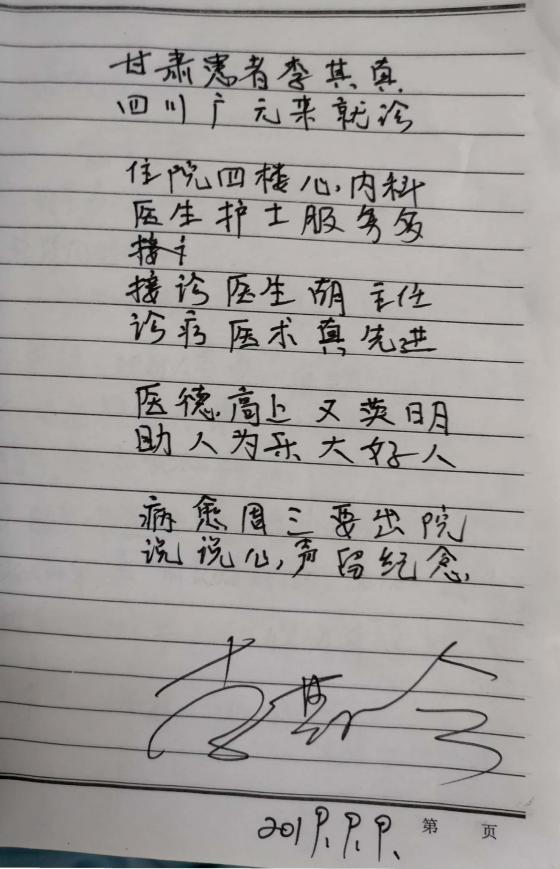 甘肃患者李其真
四川广元来就诊
住院四楼心内科
医生护士服务多
接诊医生胡主任
诊疗医术真先进
医德高上又英明
助人为乐大好人
病愈周三要出院
说说心声留纪念
2019.9.9.
第 页